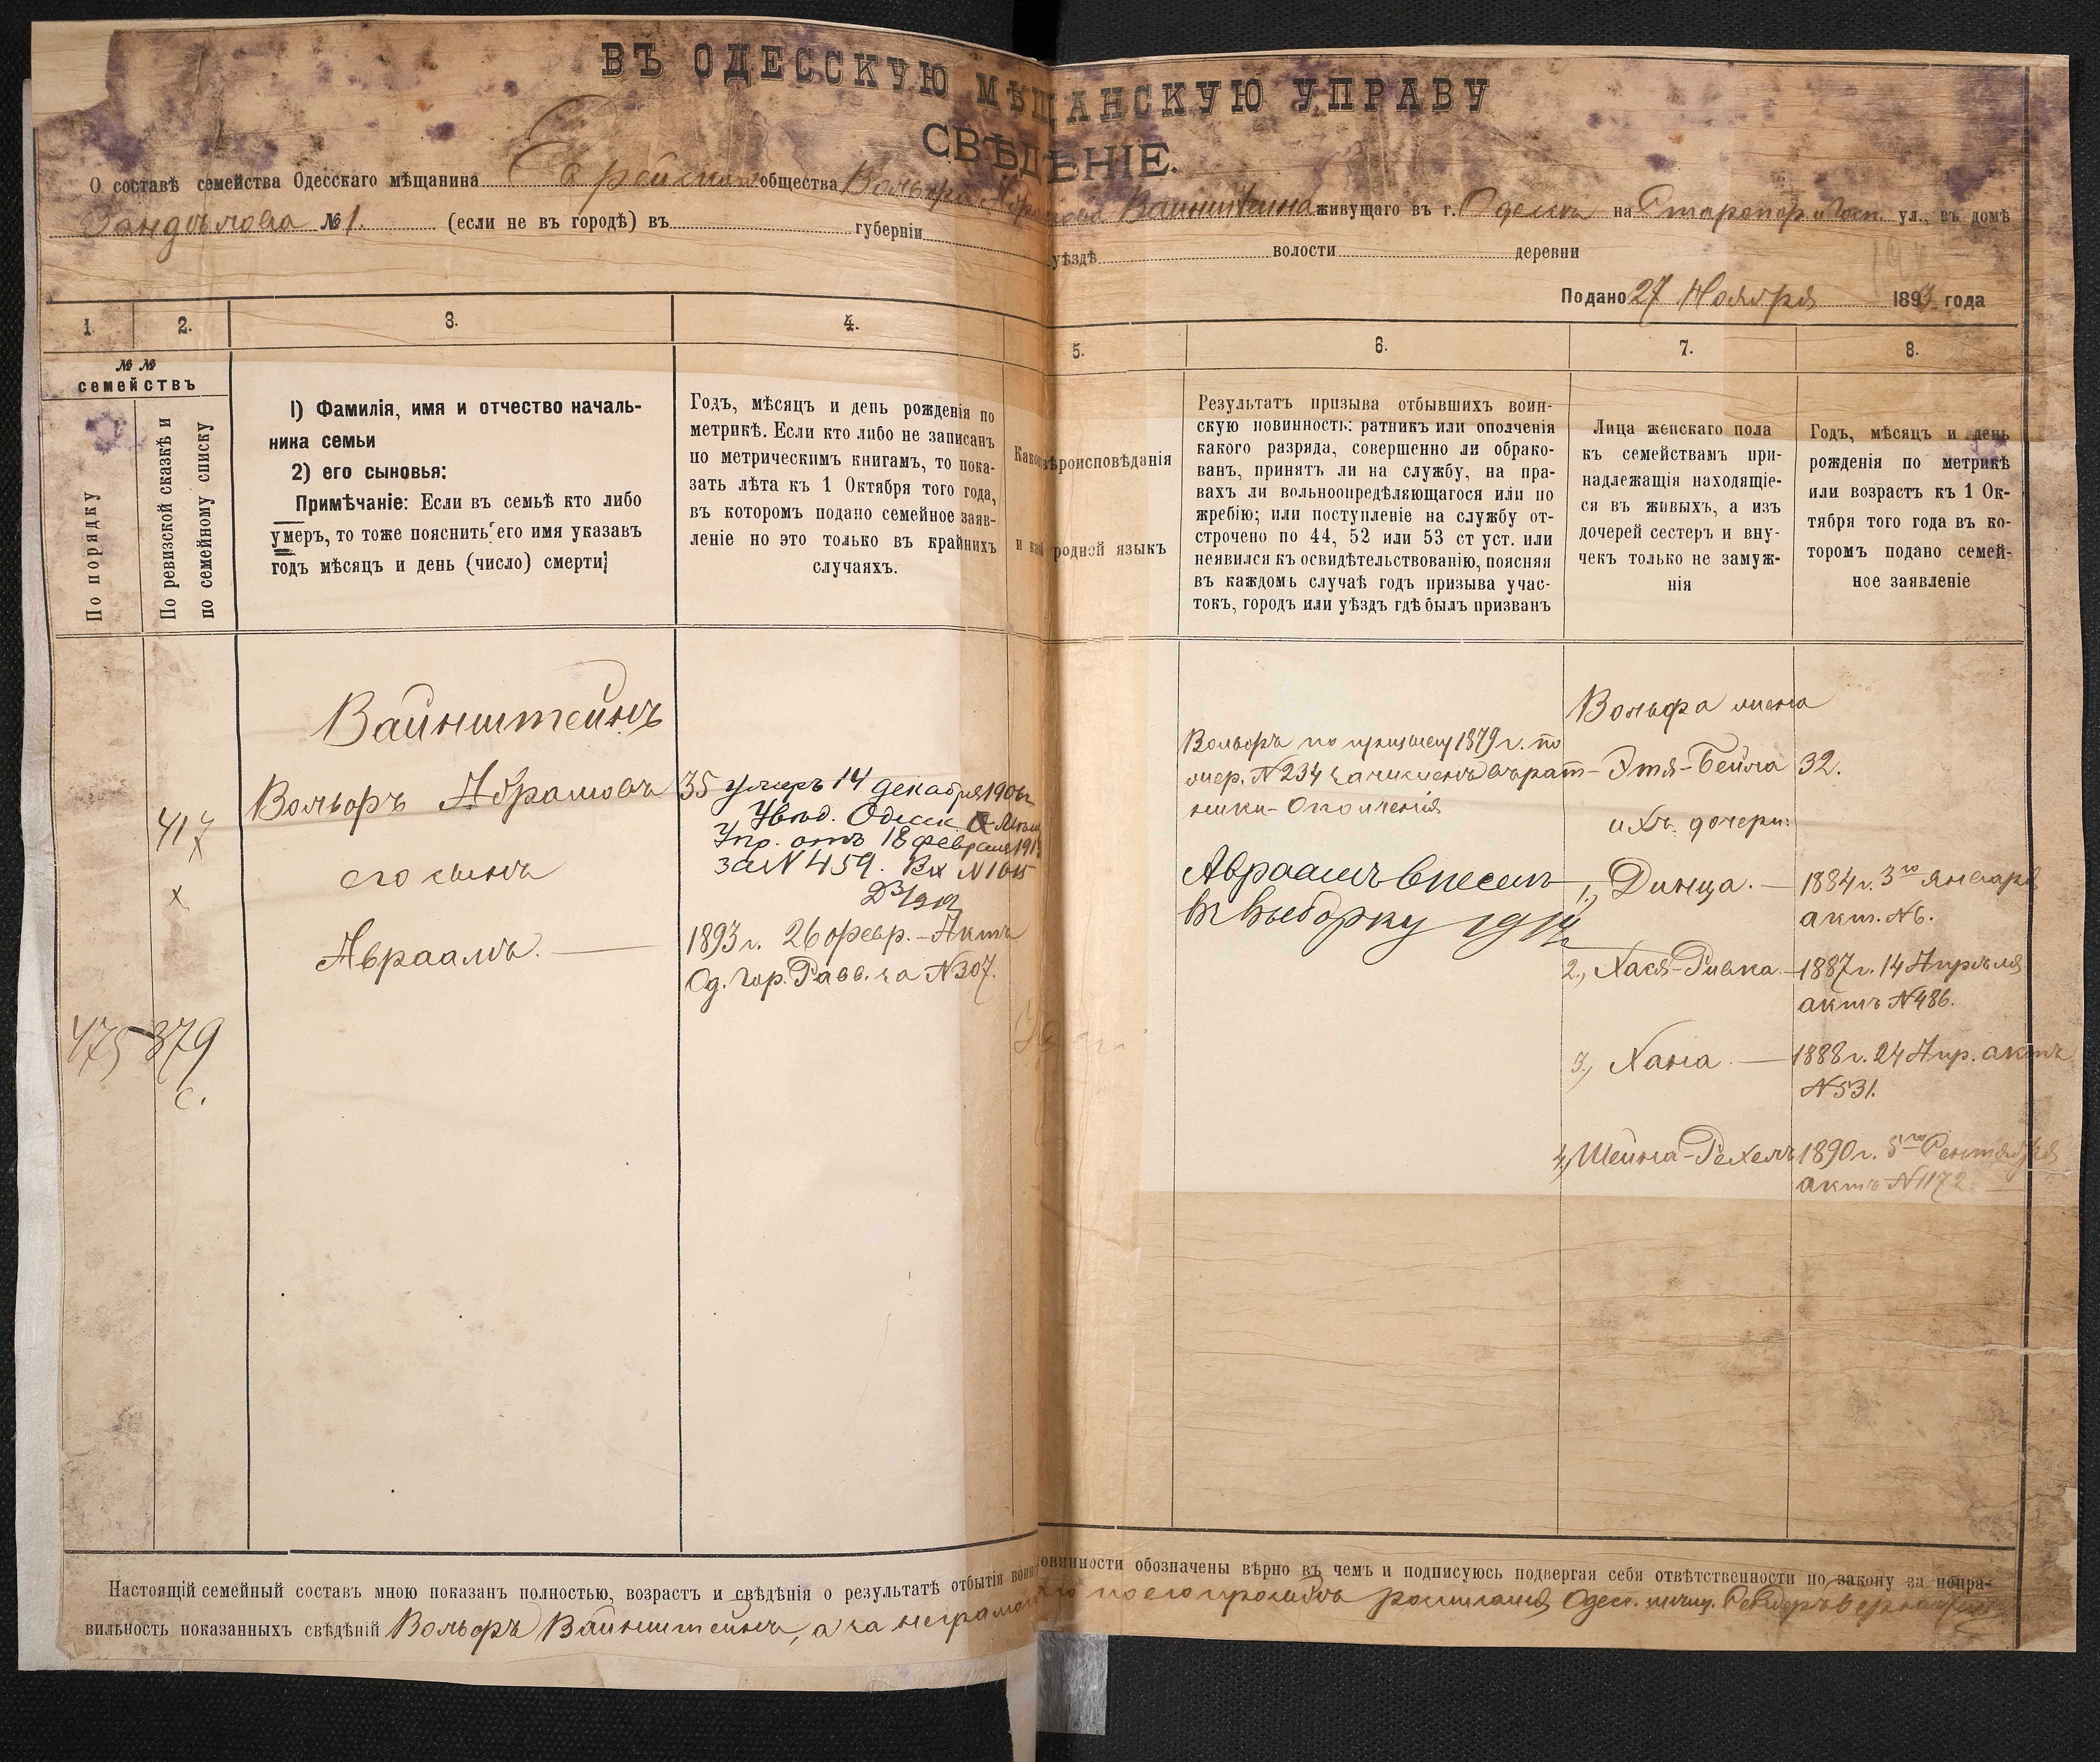 ВЪ ОДЕССКУЮ МѢЩАНСКУЮ УПРАВУ
СВѢДѢНІЕ.
О составѣ семейства Одесскаго мѣщанина Еврейскаго общества Вольфа Абрамова Вайнштейна живущаго въ г. Одессѣ на Старопор. ул., въ домѣ
№ 1. (если не въ городѣ) въ губерніи уѣздѣ волости деревни
Подано 27 Ноября 1893 года
1. 2. 3. 4. 5. 6. 7. 8.
№ №
семействъ
По порядку
По ревизской сказкѣ и
по семейному списку
1) Фамилія, имя и отчество началь-
ника семьи
2) его сыновья:
Примѣчаніе: Если въ семьѣ кто либо
умеръ, то тоже пояснить его имя указавъ
годъ мѣсяцъ и день (число) смерти;
Годъ, мѣсяцъ и день рожденія по
метрикѣ. Если кто либо не записанъ
по метрическимъ книгамъ, то пока-
зать лѣта къ 1 Октября того года,
въ которомъ подано семейное заяв-
леніе но это только въ крайнихъ
случаяхъ.
Какого вѣроисповѣданія
и какой родной языкъ
Результатъ призыва отбывшихъ воин-
скую повинность: ратникъ или ополченія
какого разряда, совершенно ли обрако-
ванъ, принятъ ли на службу, на пра-
вахъ ли вольноопредѣляющагося или по
жребію; или поступленіе на службу от-
строчено по 44, 52 или 53 ст уст. или
неявился къ освидѣтельствованію, поясняя
въ каждомъ случаѣ годъ призыва учас-
токъ, городъ или уѣздъ гдѣ былъ призванъ
Лица женскаго пола
къ семействамъ при-
надлежащія находящіе-
ся въ живыхъ, а изъ
дочерей сестеръ и вну-
чекъ только не замуж-
нія
Годъ, мѣсяцъ и день
рожденія по метрикѣ
или возрастъ къ 1 Ок-
тября того года въ ко-
торомъ подано семей-
ное заявленіе
Вайнштейнъ
417
х
х
Вольфъ Абрамовъ
его сынъ
Авраамъ. —
475 379
с.
35 умеръ 14 декабря
Увѣд. Одесск. Мѣщ
Упр. отъ 18 февраля
за № 459. Вх №
1893 г. 26 февр. – Актъ
Од. Гор. Равв. за № 307.
Вольфъ по призыву 1879 г. по
жер. № 234 зачисленъ въ рат-
ники-Ополченія
Авраамъ внесенъ
въ выборку 1914 г
Вольфа жена
Этя-Бейла 32.
ихъ дочери:
1, Динца. — 1884 г. 3го января
акт. № 6.
2, Хася-Ривка. – 1887 г. 14 Апрѣля
актъ № 486.
3, Хана. — 1888 г. 24 Апр. актъ
№ 531.
4, Шейна-Рехель 1890 г. 5го Сентября
актъ № 1172
Настоящій семейный составъ мною показанъ полностью, возрастъ и свѣдѣнія о результатѣ отбытія воинской повинности обозначены вѣрно въ чемъ и подписуюсь подвергая себя отвѣтственности по закону за непра-
вильность показанныхъ свѣдѣній Вольфъ Вайнштейнъ, а за неграмотнаго по его просьбѣ росписался Одес. мѣщ.